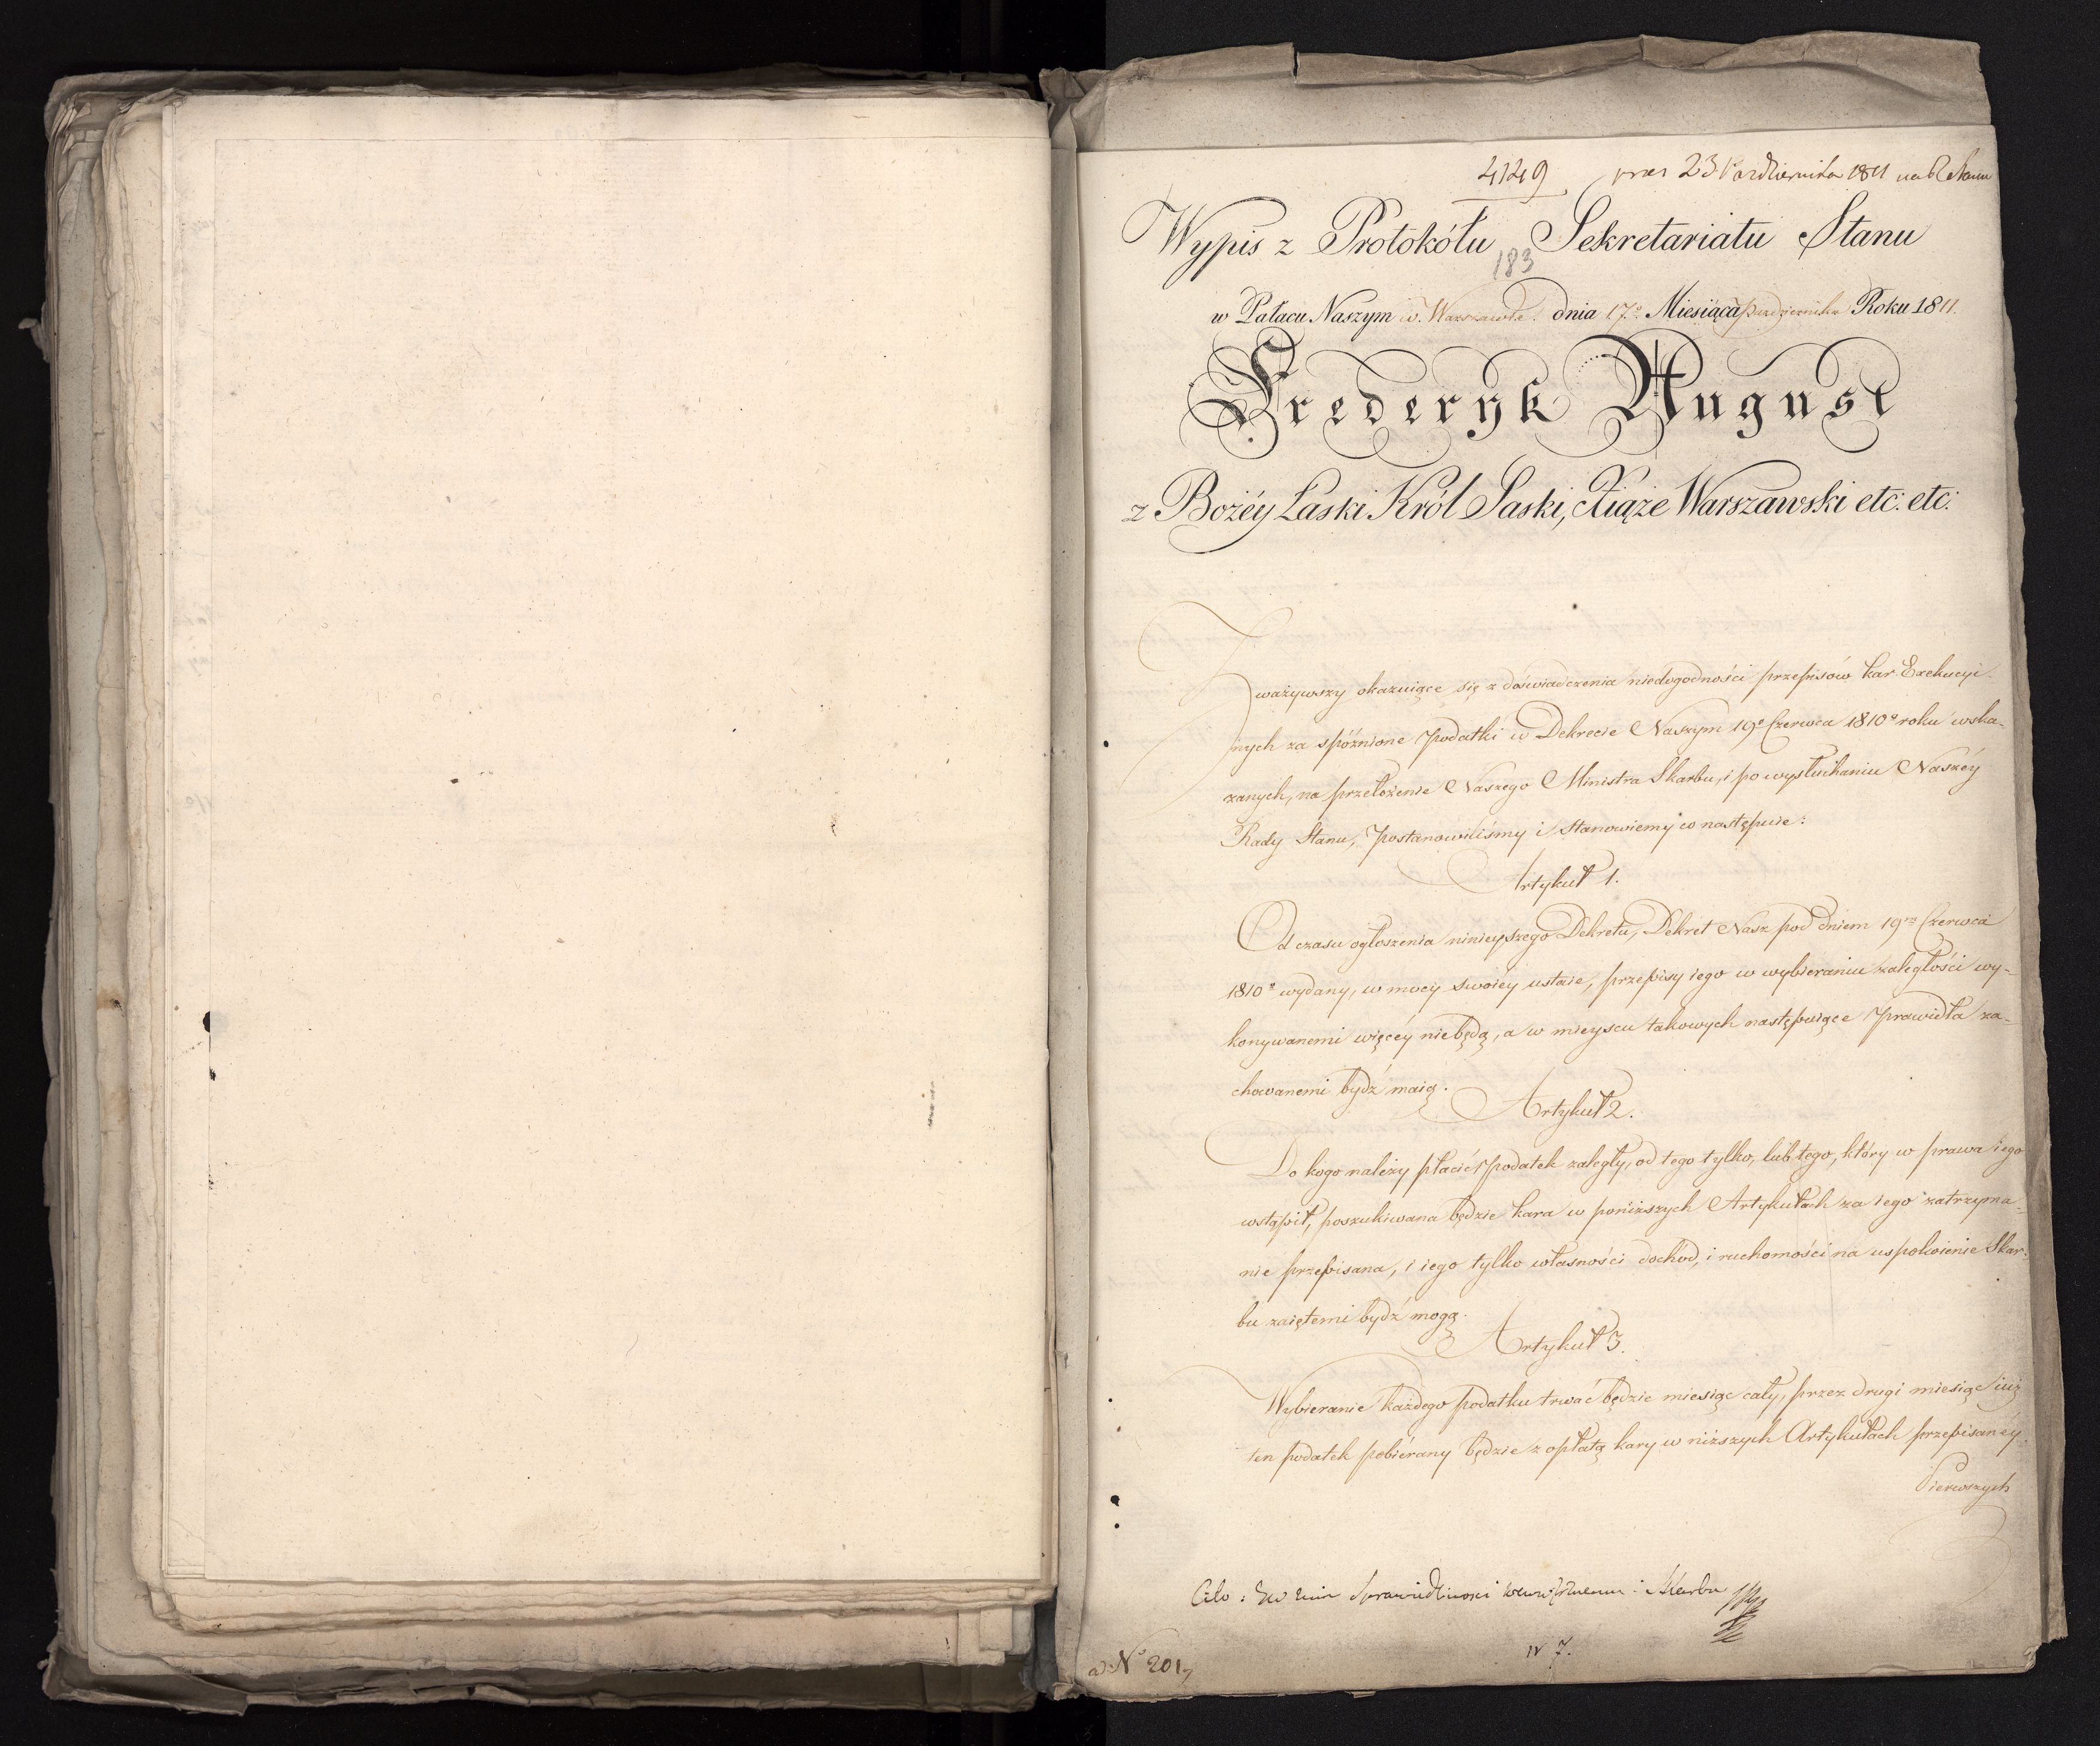 4149 pres 23 Października 1811 na R
Wypis z Protokółu Sekretariatu Stanu
183
w Pałacu Naszym w. Warszawie. dnia 17.º Miesiąca Października Roku 1811.
Frederyk August
z Bożéy Łaski Król Saski, Xiąże Warszawski etc: etc:
Zważywszy okazuiące się z doświadczenia niedogodności przepisów kar Exekucyi
nych za spóźnione podatki w Dekrecie Naszym 19º Czerwca 1810º roku wska-
zanych, na przełożenie Naszego Ministra Skarbu, i po wysłuchaniu Naszéy
Rady Stanu, Postanowiliśmy i Stanowiemy co następuie:
Artykuł 1.
Od czasu ogłoszenia ninieyszego Dekretu, Dekret Nasz pod dniem 19º Czerwca
1810º wydany, w mocy swoiéy ustaie, przepisy iego w wybieraniu zaległości wy-
konywanemi więcéy niebędą, a w mieyscu takowych następuiące prawidła za-
chowanemi bydź maią.
Artykuł 2.
Do kogo należy płacić podatek zaległy, od tego tylko, lub tego, który w prawa iego
wstąpił, poszukiwana będzie kara w poniższych Artykułach za iego zatrzyma-
nie przepisana, i iego tylko własności dochód, i ruchomości na uspokoienie Skar-
bu zaiętemi bydź mogą.
Artykuł 3.
Wybieranie każdego podatku trwać będzie miesiąc cały, przez drugi miesiąc iuż
ten podatek pobiérany będzie z opłatą kary w niższych Artykułach przepisanéy.
Pierwszych
Sprawiedliwości wewnętrznemu i Skarbu
N 7.
ad Nº 201,